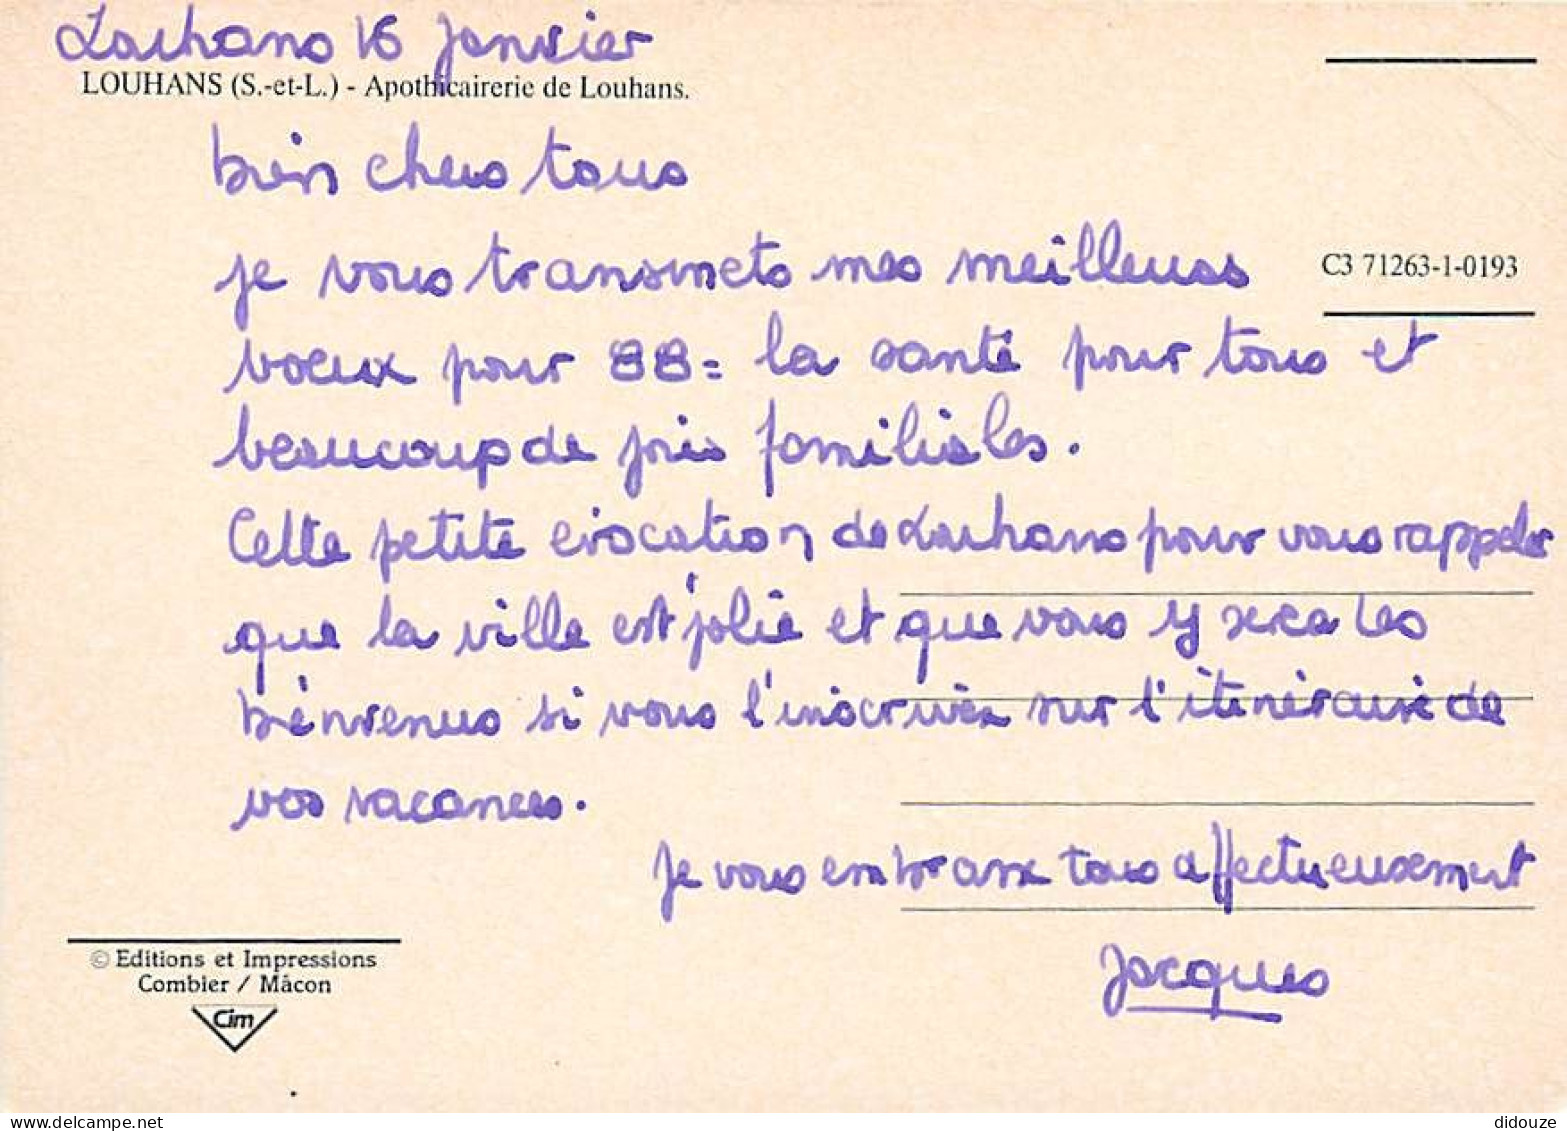 Louhans 16 janvier
LOUHANS (S.-et-L.) - Apothicairerie de Louhans.
bien chers tous
je vous transmets mes meilleurs
C3 71263-1-0193
voeux pour 88 = la santé pour tous et
beaucoup de joies familiales.
Cette petite évocation de Louhans pour vous rappeler
que la ville est jolie et que vous y serez les
bienvenus si vous l'inscrivez sur l'itinéraire de
vos vacances.
Je vous embrasse tous affectueusement
Jacques
© Editions et Impressions
Combier / Mâcon
Cim
delcampe.net
didouze